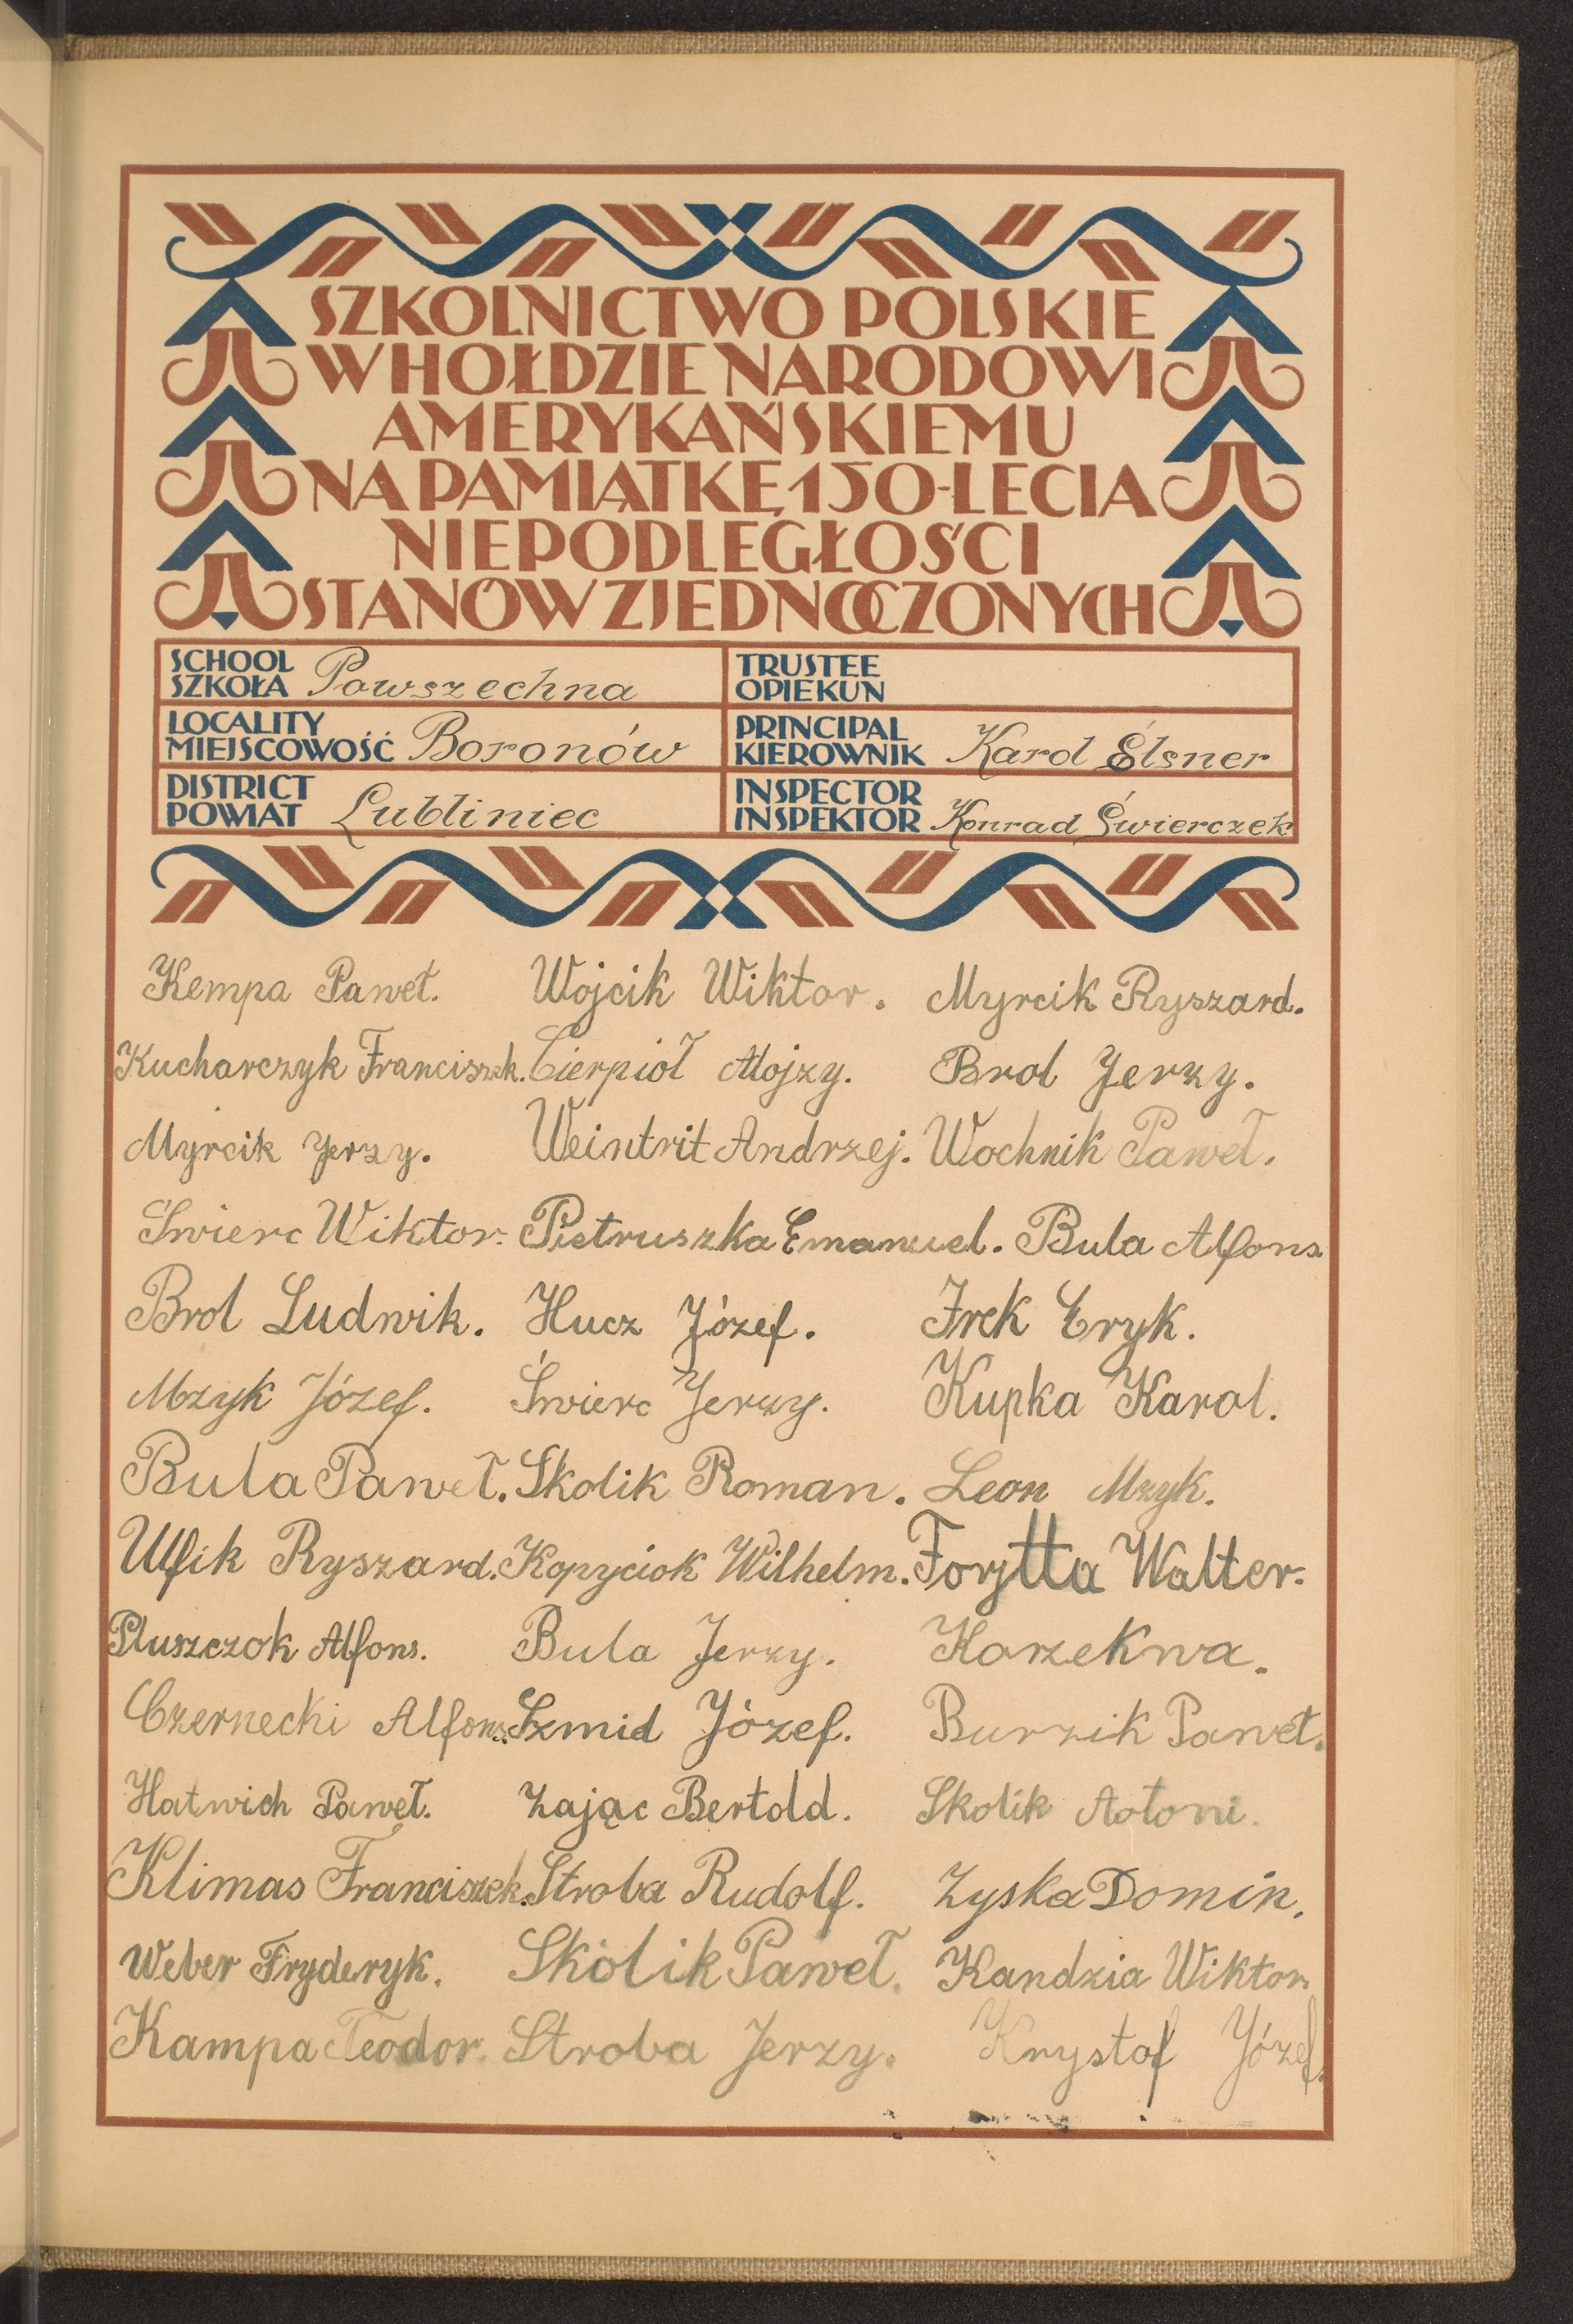 SZKOLNICTWO POLSKIE
W HOŁDZIE NARODOWI
AMERYKAŃSKIEMU
NA PAMIĄTKĘ 150-LECIA
NIEPODLEGŁOŚCI
STANÓW ZJEDNOCZONYCH
SCHOOL
SZKOŁA Powszechna
TRUSTEE
OPIEKUN
LOCALITY
MIEJSCOWOŚĆ Boronów
PRINCIPAL
KIEROWNIK Karol Elsner
DISTRICT
POWIAT Lubliniec
INSPECTOR
INSPEKTOR Konrad Świerczek
Kempa Paweł. Wojcik Wiktor. Myrcik Ryszard.
Kucharczyk Franciszek. Cierpioł Alojzy. Brol Jerzy.
Myrcik Jerzy. Weintrit Andrzej. Wochnik Paweł.
Świerc Wiktor. Pietruszka Emanuel. Bula Alfons
Brol Ludwik. Hucz Józef. Jrek Eryk.
Mzyk Józef. Świerc Jerzy. Kupka Karol.
Bula Paweł. Skolik Roman. Leon Mzyk.
Ulfik Ryszard. Kopyciok Wilhelm. Forytta Walter.
Pluszczok Alfons. Bula Jerzy. Korzekwa.
Czernecki Alfons. Szmid Józef. Burzik Paweł.
Hatwich Paweł. Zając Bertold. Skolik Antoni.
Klimas Franciszek. Stroba Rudolf. Zyska Domin.
Weber Fryderyk. Skolik Paweł. Kandzia Wiktor.
Kampa Teodor. Stroba Jerzy. Krystof Józef.